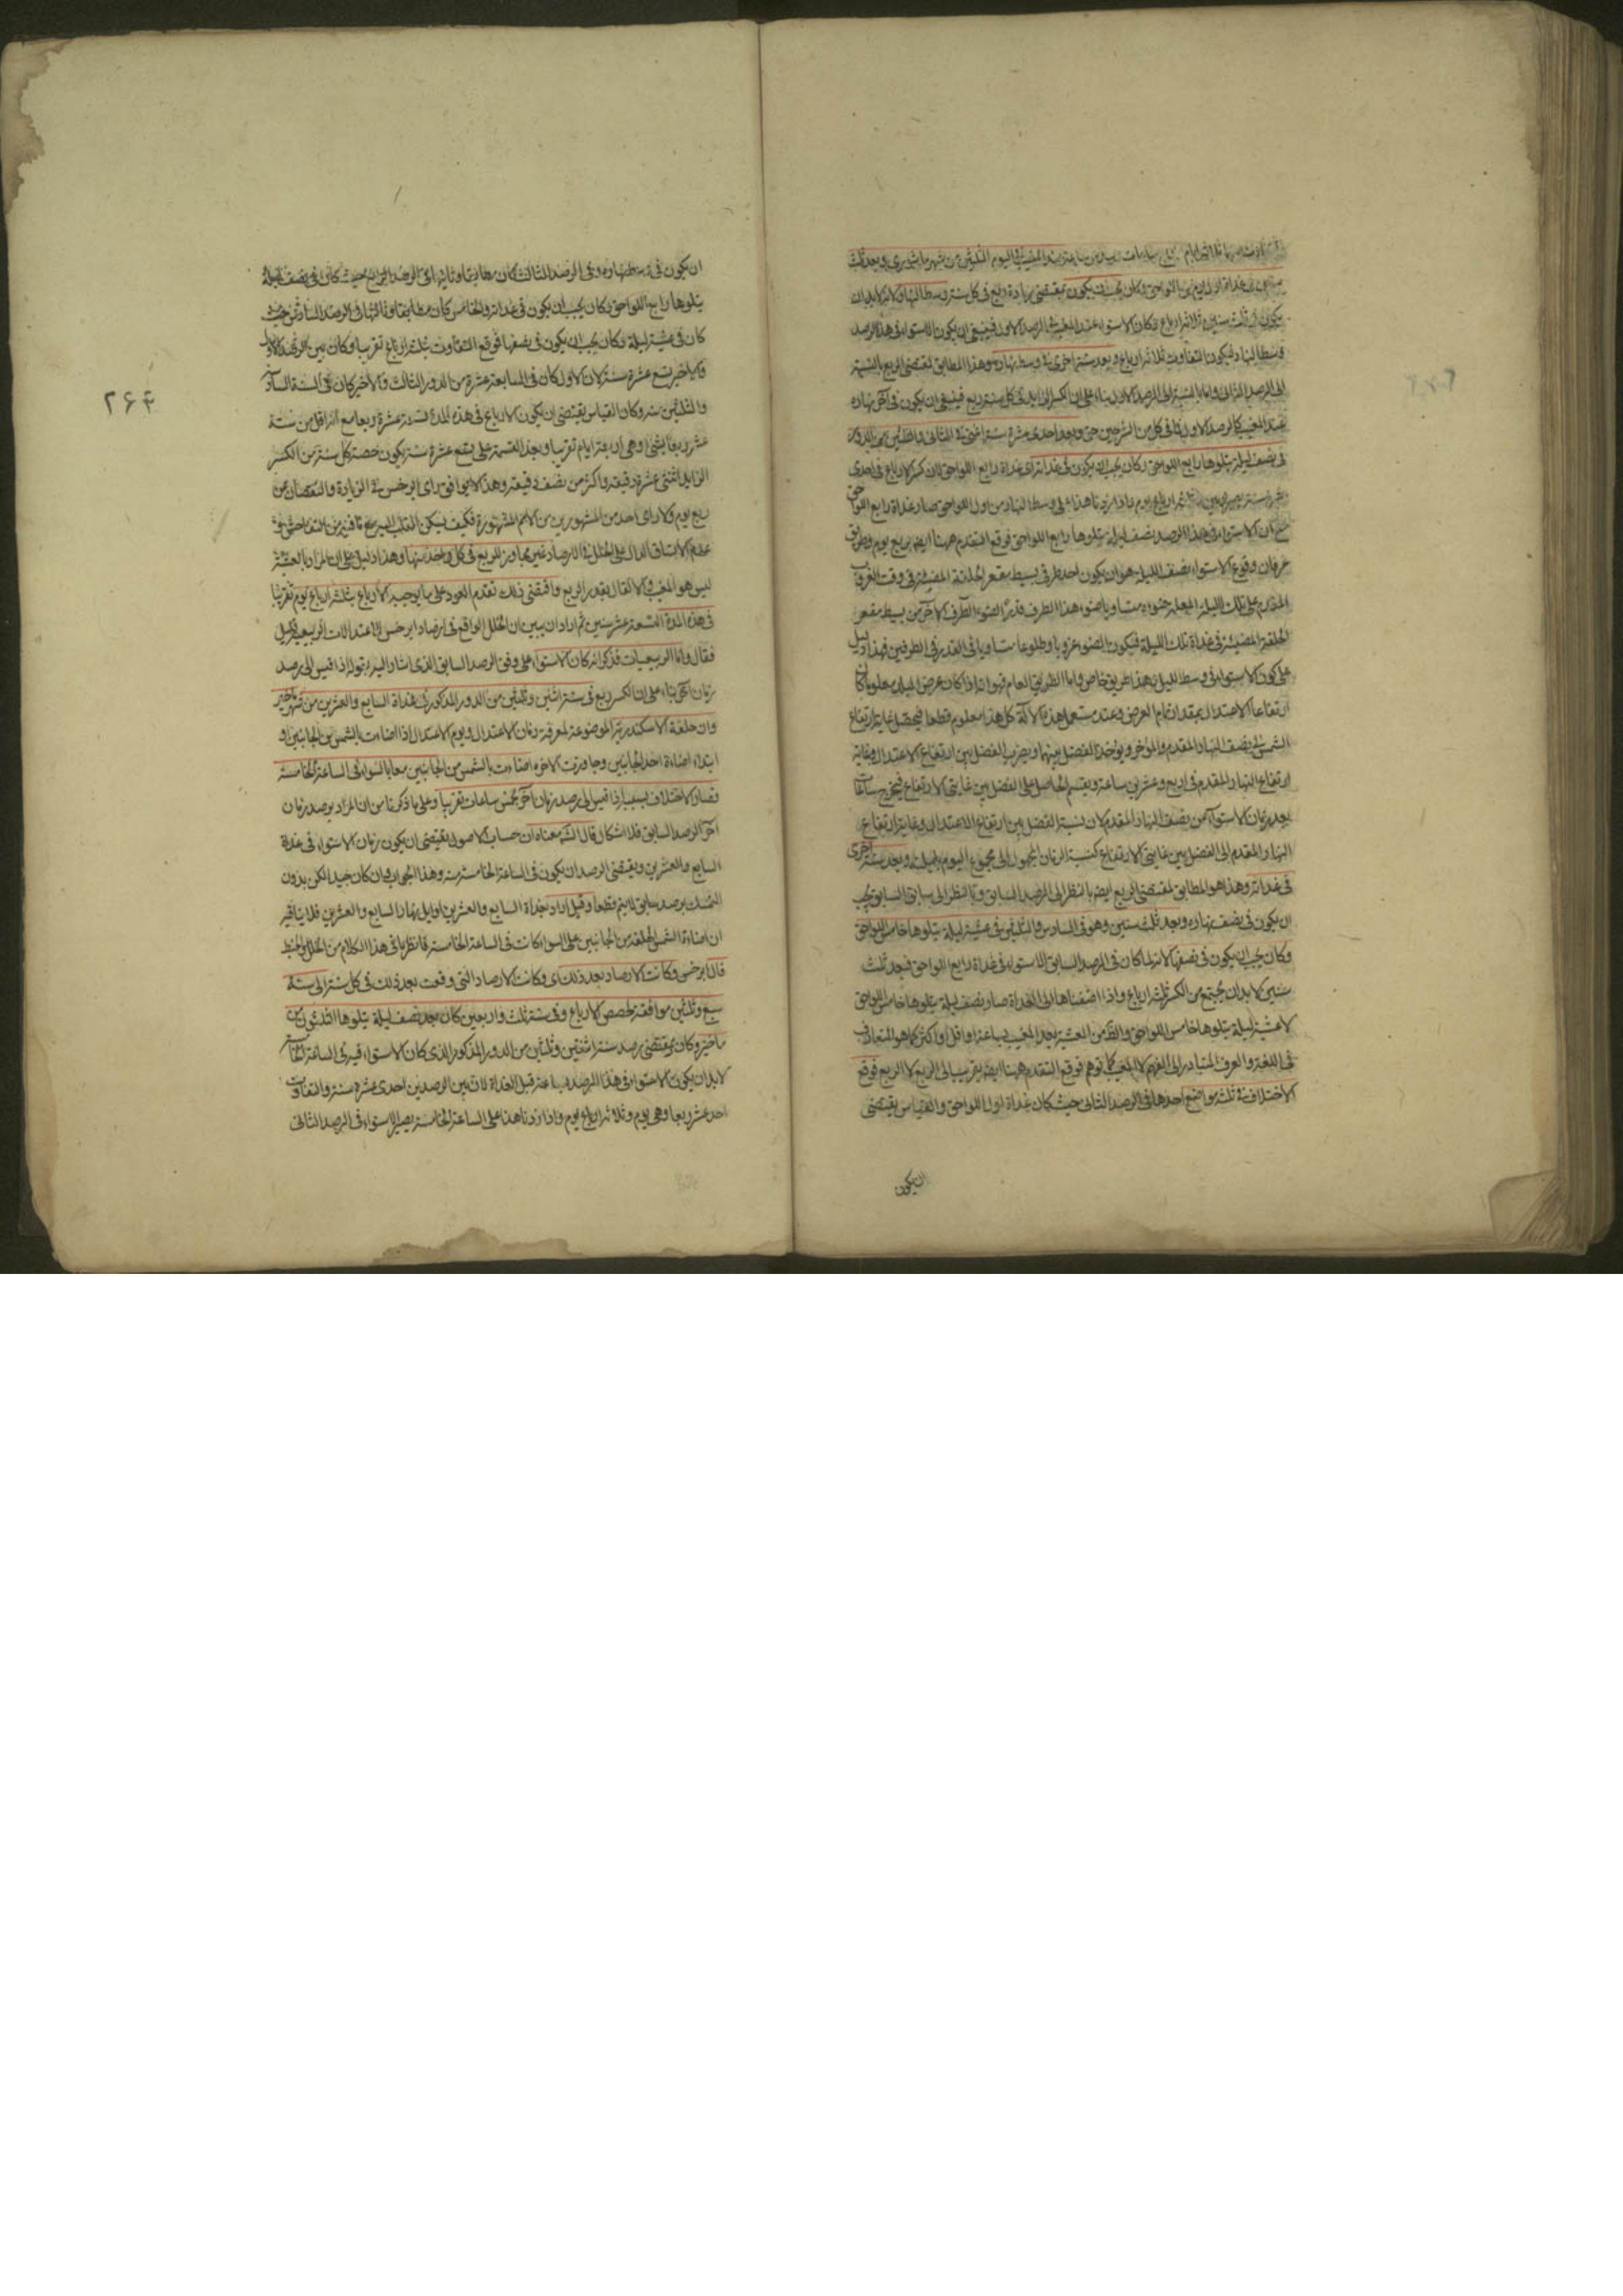 عند المغيب في اليوم الثلثين من شهر ماسوري وبعد ثلث
سنين في غداة اول يوم من اللواحق وكان يجب ان يكون بمقتضى زيادة ربع في كل سنة وسط النهار لانه لا بد ان
يكون في ثلث سنين ثلاثة ارباع وكان الاستواء عند المغيب في الرصد الاول فينبغي ان يكون الاستواء في هذا الرصد
وسط النهار فيكون التفاوت ثلاثة ارباع وبعد سنة اخرى في وسط نهاره وهذا المطابق لمقتضى الربع بالنسبة
الى الرصد الثاني واما بالنسبة الى الرصد الاول بناء على ان الكسر الزايد في كل سنة ربع فينبغي ان يكون في آخر نهاره
عند المغيب كالرصد الاول وبعد احدى عشرة سنة اعني في الثاني والثلثين من الدور
في نصف ليلة يتلوها رابع اللواحق وكان يجب ان يكون في غداته اي غداة رابع اللواحق لان كسر الارباع في احدى
عشرة سنة يصير يومين وثلثة ارباع يوم واذا زدنا هذا على وسط النهار من اول اللواحق صار غداة رابع اللواحق
مع ان الاستواء في هذا الرصد نصف ليلة يتلوها رابع اللواحق فوقع التقدم ههنا ايضا بربع يوم وطريق
عرفان وقوع الاستواء نصف الليلة هو ان يكون احد طرفي بسيط مقعر الحلقة المضيئة في وقت الغروب
المقدم على تلك الليلة ضوءه متساويا لضوء هذا الطرف الآخر من بسيط مقعر
الحلقة المضيئة في غداة تلك الليلة فيكون الضوء غروبا وطلوعا متساويا في القدر في الطرفين فهذا دليل
على كون الاستواء في وسط الليل بهذا طريق خاص واما الطريق العام فهو انه اذا كان عرض البلد معلوما كان
ارتفاع الاعتدال بمقدار تمام العرض وعند مستعمل هذه الآلة كل هذا معلوم قطعا فيحصل غاية ارتفاع
الشمس في نصف النهار المقدم والمؤخر ويؤخذ الفضل بينهما ويضرب الفضل بين ارتفاع الاعتدال وغاية
ارتفاع النهار المقدم في اربع وعشرين ساعة ويقسم الحاصل على الفضل بين غايتي الارتفاع فيخرج ساعات
بعد زمان الاستواء من نصف النهار المقدم لان نسبة الفضل بين ارتفاع الاعتدال وغاية ارتفاع
النهار المقدم الى الفضل بين غايتي الارتفاع كنسبة الزمان المجهول الى مجموع اليوم بليلته وبعد سنة اخرى
في غداته وهذا هو المطابق لمقتضى الربع ايضا بالنظر الى الرصد السابق وبالنظر الى سابق السابق يجب
ان يكون في نصف نهاره وبعد ثلث سنين وهو في السادس والثلثين في عشية ليلة يتلوها خامس اللواحق
وكان يجب ان يكون في نصفها لانه لما كان في الرصد السابق الاستواء في غداة رابع اللواحق فبعد ثلث
سنين لا بد ان يجتمع من الكسر ثلثة ارباع واذا اضفناها الى الغداة صار نصف ليلة يتلوها خامس اللواحق
لا عشية ليلة يتلوها خامس اللواحق والظ من العشية بعد المغيب بساعة او اقل او اكثر كما هو المتعارف
في اللغة والعرف المتبادر الى الفهم لا المغيب كما توهم فوقع التقدم ههنا ايضا بقريب الى الربع لا الربع فوقع
الاختلاف في ثلثة مواضع احدها في الرصد الثاني حيث كان غداة اول اللواحق والقياس يقتضي
ان يكون
ان يكون في وسط نهاره وفي الرصد الثالث كان مطابقا وثانيها في الرصد الرابع حيث كان في نصف ليلة
يتلوها رابع اللواحق وكان يجب ان يكون في غداته والخامس كان مطابقا وثالثها في الرصد السادس حيث
كان في عشية ليلة وكان يجب ان يكون في نصفها فوقع التفاوت بثلثة ارباع تقريبا وكان بين الرصد الاول
والاخير تسع عشرة سنة لان الاول كان في السابعة عشرة من الدور الثالث والاخير كان في السنة السادسة
والثلثين منه وكان القياس يقتضي ان يكون الارباع في هذه المدة تسعة عشر ربعا مع انه اقل من ستة
عشر ربعا بشيء وهي اربعة ايام تقريبا وبعد القسمة على تسع عشرة سنة يكون حصة كل سنة من الكسر
الزايد اثنتي عشرة دقيقة واكثر من نصف دقيقة وهذا لا يوافق رأي ابرخس في الزيادة والنقصان من
ربع يوم ولا رأي احد من المشهورين من الامم المشهورة فكيف يسكن القلب اليه مع ما فيه من التفاحش في
عدم الاتساق الدال على الخلل في الارصاد غير مجاوز للربع في كل واحد منها وهذا دليل على ان المراد بالعشية
ليس هو المغيب والا لقال بقدر الربع واقتضى ذلك تقدم العود على ما يوجبه الارباع بثلثة ارباع يوم تقريبا
في هذه المدة التسعة عشر سنين ثم اراد ان يبين ان الخلل الواقع في ارصاد ابرخس للاعتدالات الربيعية قليل
فقال واما الربيعيات فذكر انه كان الاستواء على وفق الرصد السابق الذي اشار اليه بقوله اذا قيس الى رصد
زمان آخر بناء على ان الكسر ربع في سنة اثنين وثلثين من الدور المذكور في غداة السابع والعشرين من شهر ماخير
وان حلقة الاسكندرية الموضوعة لمعرفة زمان الاعتدال ويوم الاعتدال اذا اضاءت بالشمس من الجانبين او
ابتداء اضاءة احد الجانبين وجاوزت الآخر اضاءت بالشمس من الجانبين معا بالسواء في الساعة الخامسة
فصار الاختلاف بسببه اذا قيس الى رصد زمان آخر بخمس ساعات تقريبا وعلى ما ذكرنا من ان المراد برصد زمان
آخر الرصد السابق فلا اشكال قال الش معناه ان حساب الاصول يقتضي ان يكون زمان الاستواء في غداة
السابع والعشرين ويقتضي الرصد ان يكون في الساعة الخامسة منه وهذا الجواب وان كان جيدا لكن بدون
التمسك برصد سابق لا يتم قطعا وقيل اراد بغداة السابع والعشرين اوايل نهار السابع والعشرين فلا ينافيه
ان اضاءة الشمس الحلقة من الجانبين على السواء كانت في الساعة الخامسة فانظر ما في هذا الكلام من الخلل والخبط
قال ابرخس وكانت الارصاد بعد ذلك اي وكانت الارصاد التي وقعت بعد ذلك في كل سنة الى سنة
سبع وثلثين موافقة لحصص الارباع وفي سنة ثلث واربعين كان بعد نصف ليلة يتلوها الثلثون من
ماخير وكان بمقتضى رصد سنة اثنتين وثلثين من الدور المذكور الذي كان الاستواء فيه في الساعة الخامسة
لا بد ان يكون الاستواء في هذا الرصد بساعة قبل الغداة لان بين الرصدين احدى عشرة سنة والتفاوت
احد عشر ربعا وهي يوم وثلاثة ارباع يوم واذا زدنا هذا على الساعة الخامسة يصير الاستواء في الرصد الثاني
۲۶۴